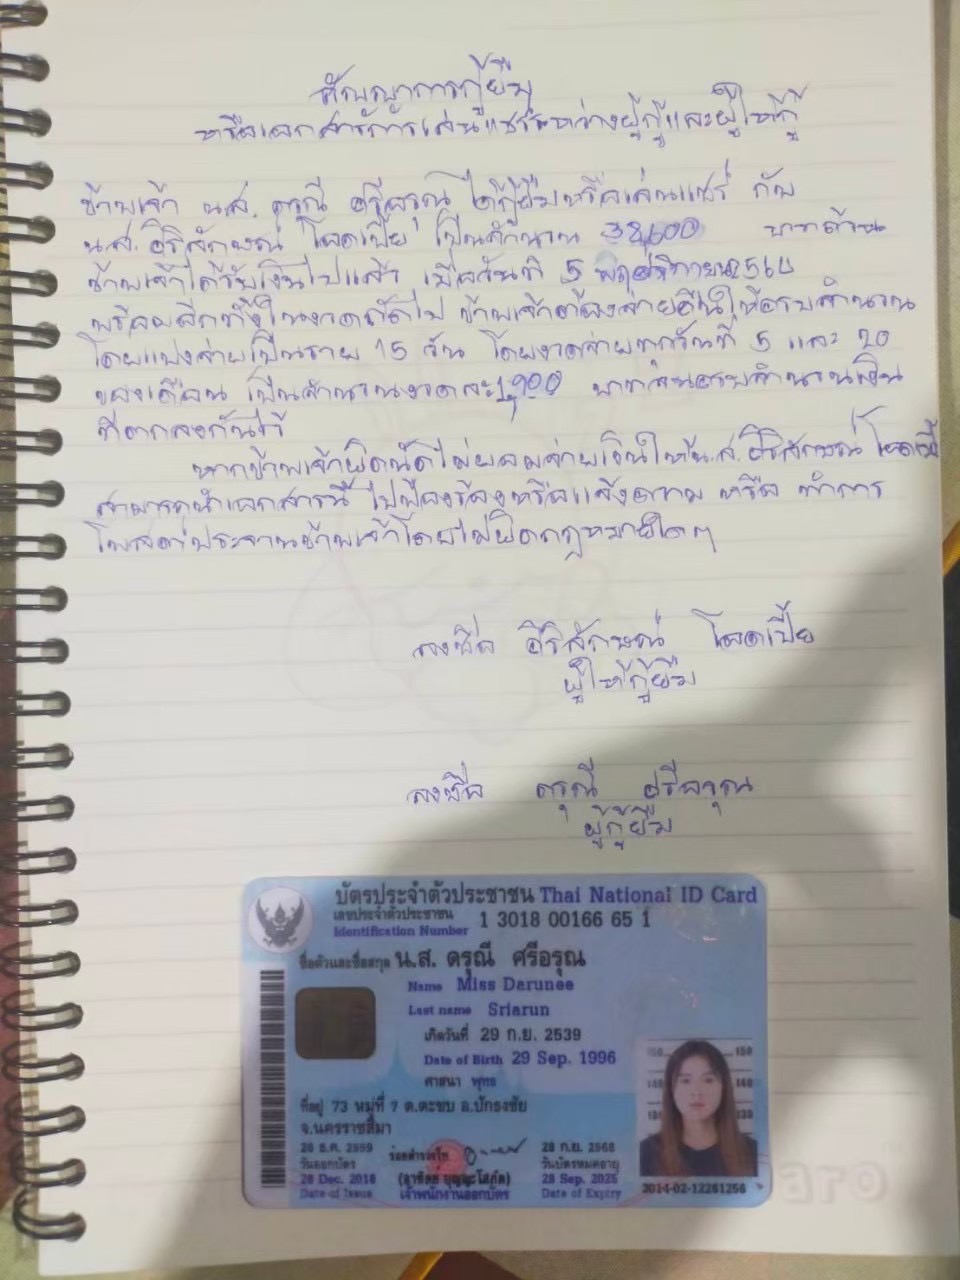 สัญญาการกู้ยืม
หรือเอกสารการเล่นแชร์ระหว่างผู้กู้และผู้ให้กู้
ข้าพเจ้า น.ส. ดรุณี ศรีอรุณ ได้กู้ยืมหรือเล่นแชร์ กับ
น.ส. สิริลักษณ์ โอดเปี้ย เป็นจำนวน 38,600 บาทถ้วน
ข้าพเจ้าได้รับเงินไปแล้ว เมื่อวันที่ 5 พฤศจิกายน
โดยแบ่งจ่ายเป็นราย 15 วัน โดยงวดจ่ายทุกวันที่ 5 และ 20
ของเดือน เป็นจำนวนงวดละ 1,900 บาทจนครบจำนวนเงิน
ที่ตกลงกันไว้
หากข้าพเจ้าผิดนัดไม่ยอมจ่ายเงินให้ น.ส. สิริลักษณ์ โอดเปี้ย
สามารถนำเอกสารนี้ไปฟ้องร้องหรือแจ้งความ หรือ ทำการ
โพสต์ประจานข้าพเจ้าโดยไม่ผิดกฎหมายใดๆ
ลงชื่อ สิริลักษณ์ โอดเปี้ย
ผู้ให้กู้ยืม
ลงชื่อ ดรุณี ศรีอรุณ
ผู้กู้ยืม
บัตรประจำตัวประชาชน Thai National ID Card
เลขประจำตัวประชาชน 1 3018 00166 65 1
Identification Number
ชื่อตัวและชื่อสกุล น.ส. ดรุณี ศรีอรุณ
Name Miss Darunee
Last name Sriarun
เกิดวันที่ 29 ก.ย. 2539
Date of Birth 29 Sep. 1996
ศาสนา พุทธ
ที่อยู่ 73 หมู่ที่ 7 ต.ตะขบ อ.ปักธงชัย
จ.นครราชสีมา
28 ธ.ค. 2559
วันออกบัตร
28 Dec. 2016
Date of Issue
เจ้าพนักงานออกบัตร
28 ก.ย. 2568
วันบัตรหมดอายุ
28 Sep. 2025
Date of Expiry
150 150
140 140
130 130
2014-02-12281256